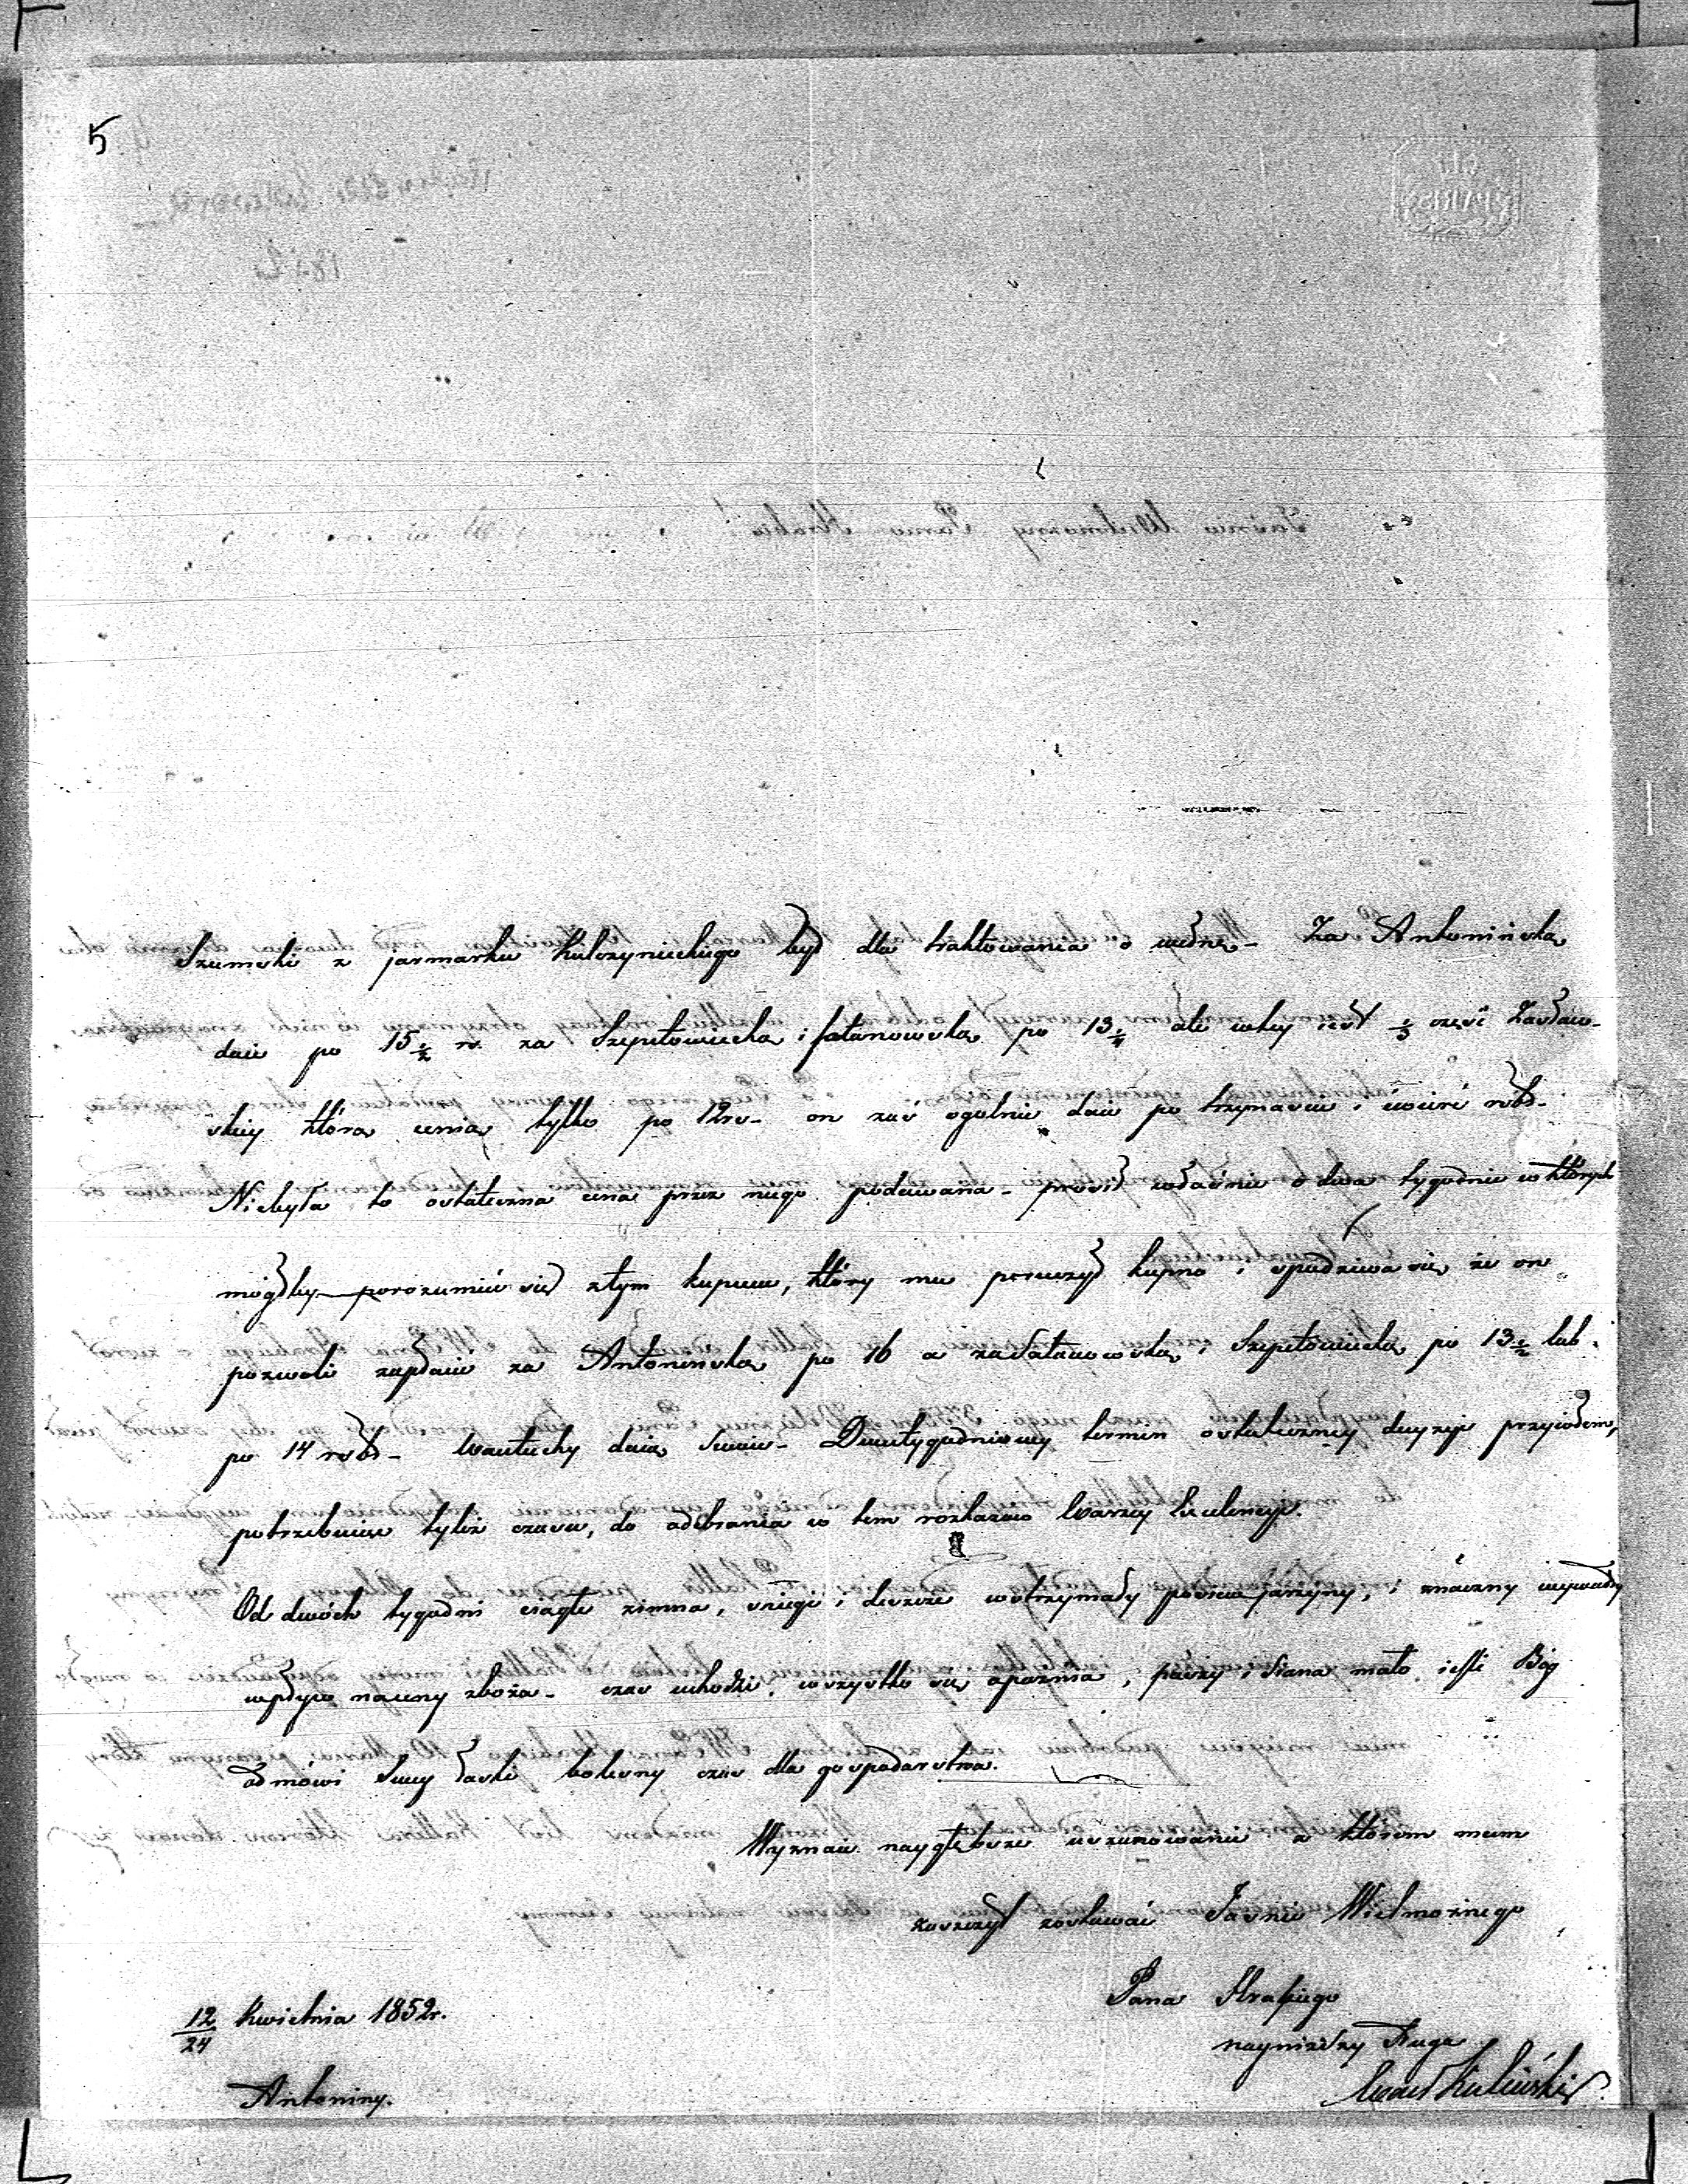 5
Szumski z jarmarku Kulczynieckiego był dla traktowania o wełnę - Za Antonińską
daie po 15 1/2 rs. za Szepetowiecką i Sałanowską po 13 1/4 ale w tey iest 1/3 część Zasław-
skiey którą cenią tylko po 12 rs - on zaś ogolnie daie po trzynaście i ćwierć rsbs -
Niebyła to ostateczna cena przez niego podawana - prosił właśnie o dwa tygodnie w których
mógłby porozumieć się z tym kupcem, który mu poruczył kupno i spodziewa się że on
pozwoli zapłacić za Antonińską po 16 a za Sałanowską i Szepetowiecką po 13 1/2 lub
po 14 rsbs - Wantuchy daią Swoie - Dwutygodniowy termin ostateczney decyzyi przyiołem,
potrzebuiąc tyleż czasu, do odebrania w tem rozkazów Waszey Excelencyi.
Od dwóch tygodni ciągłe zimna, sniegi i deszcze wstrzymały posiew jarzyny, i znaczny wywarły
wpływ na ceny zboża - czas uchodzi, wszystko się opaznia, paszy i Siana mało ieśli Bóg
odmówi Swey łaski bolesny czas dla gospodarstwa.
Wyznaie naygłębsze uszanowanie z którem mam
zaszczyt zostawać Jaśnie Wielmożnego
Pana Hrabiego
nayniższy Sługa
Kuliński
12/24 Kwietnia 1852 r.
Antoniny.